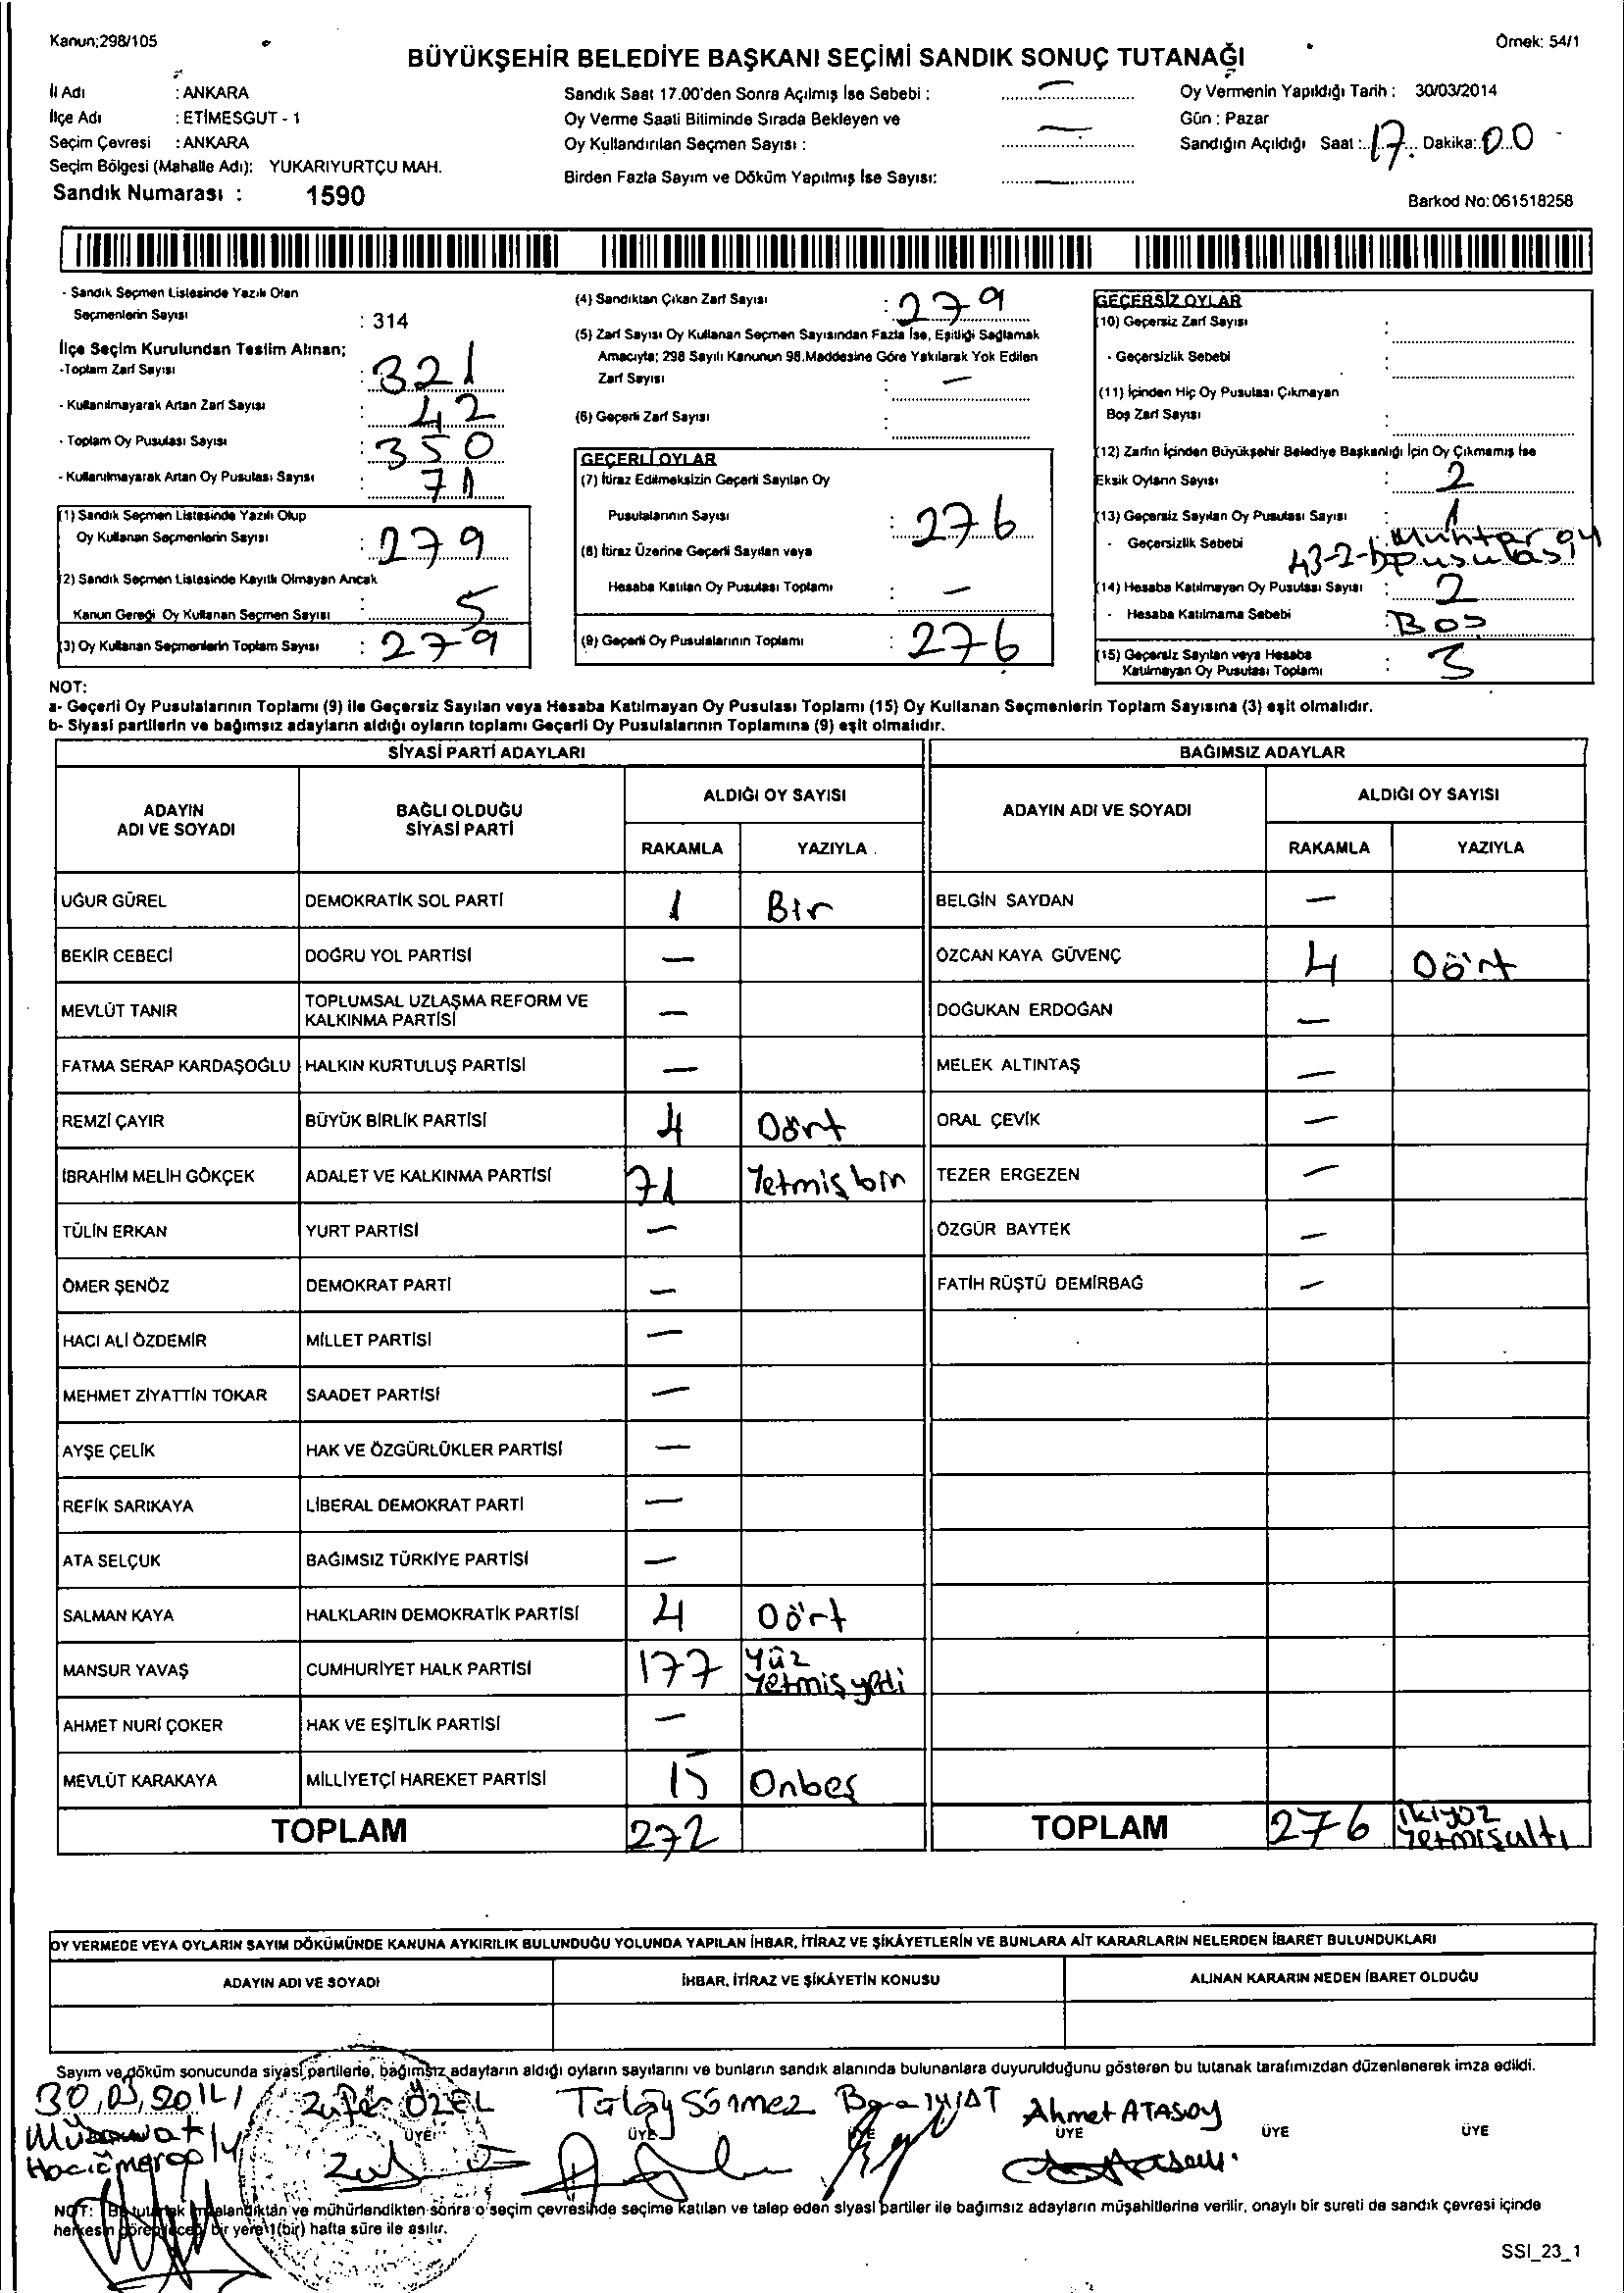 Kanun:298/105
Örnek: 54/1
BÜYÜKŞEHİR BELEDİYE BAŞKANI SEÇİMİ SANDIK SONUÇ TUTANAĞI
İl Adı : ANKARA
İlçe Adı : ETİMESGUT - 1
Seçim Çevresi : ANKARA
Seçim Bölgesi (Mahalle Adı): YUKARIYURTÇU MAH.
Sandık Numarası : 1590
Sandık Saat 17.00'den Sonra Açılmış İse Sebebi : —
Oy Verme Saati Bitiminde Sırada Bekleyen ve
Oy Kullandırılan Seçmen Sayısı : —
Birden Fazla Sayım ve Döküm Yapılmış İse Sayısı: —
Oy Vermenin Yapıldığı Tarih : 30/03/2014
Gün : Pazar
Sandığın Açıldığı Saat : 17. Dakika: 00
Barkod No: 061518258
- Sandık Seçmen Listesinde Yazılı Olan
Seçmenlerin Sayısı : 314
İlçe Seçim Kurulundan Teslim Alınan;
-Toplam Zarf Sayısı : 321
- Kullanılmayarak Artan Zarf Sayısı : 42
- Toplam Oy Pusulası Sayısı : 350
- Kullanılmayarak Artan Oy Pusulası Sayısı : 71
(1) Sandık Seçmen Listesinde Yazılı Olup
Oy Kullanan Seçmenlerin Sayısı : 279
(2) Sandık Seçmen Listesinde Kayıtlı Olmayan Ancak
Kanun Gereği Oy Kullanan Seçmen Sayısı : 5
(3) Oy Kullanan Seçmenlerin Toplam Sayısı : 279
(4) Sandıktan Çıkan Zarf Sayısı : 279
(5) Zarf Sayısı Oy Kullanan Seçmen Sayısından Fazla İse, Eşitliği Sağlamak
Amacıyla; 298 Sayılı Kanunun 98.Maddesine Göre Yakılarak Yok Edilen
Zarf Sayısı : —
(6) Geçerli Zarf Sayısı :
GEÇERLİ OYLAR
(7) İtiraz Edilmeksizin Geçerli Sayılan Oy
Pusulalarının Sayısı : 276
(8) İtiraz Üzerine Geçerli Sayılan veya
Hesaba Katılan Oy Pusulası Toplamı : —
(9) Geçerli Oy Pusulalarının Toplamı : 276
GEÇERSİZ OYLAR
(10) Geçersiz Zarf Sayısı :
- Geçersizlik Sebebi :
(11) İçinden Hiç Oy Pusulası Çıkmayan
Boş Zarf Sayısı :
(12) Zarfın İçinden Büyükşehir Belediye Başkanlığı İçin Oy Çıkmamış İse
Eksik Oyların Sayısı : 2
(13) Geçersiz Sayılan Oy Pusulası Sayısı : 1
- Geçersizlik Sebebi : Muhtar oy
43-2-b pusulası
(14) Hesaba Katılmayan Oy Pusulası Sayısı : 2
- Hesaba Katılmama Sebebi : Boş
(15) Geçersiz Sayılan veya Hesaba
Katılmayan Oy Pusulası Toplamı : 3
NOT:
a- Geçerli Oy Pusulalarının Toplamı (9) ile Geçersiz Sayılan veya Hesaba Katılmayan Oy Pusulası Toplamı (15) Oy Kullanan Seçmenlerin Toplam Sayısına (3) eşit olmalıdır.
b- Siyasi partilerin ve bağımsız adayların aldığı oyların toplamı Geçerli Oy Pusulalarının Toplamına (9) eşit olmalıdır.
SİYASİ PARTİ ADAYLARI
ADAYIN ADI VE SOYADI BAĞLI OLDUĞU SİYASİ PARTİ ALDIĞI OY SAYISI
RAKAMLA YAZIYLA
UĞUR GÜREL DEMOKRATİK SOL PARTİ 1 Bir
BEKİR CEBECİ DOĞRU YOL PARTİSİ —
MEVLÜT TANIR TOPLUMSAL UZLAŞMA REFORM VE KALKINMA PARTİSİ —
FATMA SERAP KARDAŞOĞLU HALKIN KURTULUŞ PARTİSİ —
REMZİ ÇAYIR BÜYÜK BİRLİK PARTİSİ 4 Dört
İBRAHİM MELİH GÖKÇEK ADALET VE KALKINMA PARTİSİ 71 Yetmiş bir
TÜLİN ERKAN YURT PARTİSİ —
ÖMER ŞENÖZ DEMOKRAT PARTİ —
HACI ALİ ÖZDEMİR MİLLET PARTİSİ —
MEHMET ZİYATTİN TOKAR SAADET PARTİSİ —
AYŞE ÇELİK HAK VE ÖZGÜRLÜKLER PARTİSİ —
REFİK SARIKAYA LİBERAL DEMOKRAT PARTİ —
ATA SELÇUK BAĞIMSIZ TÜRKİYE PARTİSİ —
SALMAN KAYA HALKLARIN DEMOKRATİK PARTİSİ 4 Dört
MANSUR YAVAŞ CUMHURİYET HALK PARTİSİ 177 Yüz Yetmiş yedi
AHMET NURİ ÇOKER HAK VE EŞİTLİK PARTİSİ —
MEVLÜT KARAKAYA MİLLİYETÇİ HAREKET PARTİSİ 15 Onbeş
TOPLAM 272
BAĞIMSIZ ADAYLAR
ADAYIN ADI VE SOYADI ALDIĞI OY SAYISI
RAKAMLA YAZIYLA
BELGİN SAYDAN —
ÖZCAN KAYA GÜVENÇ 4 Dört
DOĞUKAN ERDOĞAN —
MELEK ALTINTAŞ —
ORAL ÇEVİK —
TEZER ERGEZEN —
ÖZGÜR BAYTEK —
FATİH RÜŞTÜ DEMİRBAĞ —
TOPLAM 276 ikiyüz Yetmişaltı
OY VERMEDE VEYA OYLARIN SAYIM DÖKÜMÜNDE KANUNA AYKIRILIK BULUNDUĞU YOLUNDA YAPILAN İHBAR, İTİRAZ VE ŞİKÂYETLERİN VE BUNLARA AİT KARARLARIN NELERDEN İBARET BULUNDUKLARI
ADAYIN ADI VE SOYADI İHBAR, İTİRAZ VE ŞİKÂYETİN KONUSU ALINAN KARARIN NEDEN İBARET OLDUĞU
Sayım ve döküm sonucunda siyasi partilerle, bağımsız adayların aldığı oyların sayılarını ve bunların sandık alanında bulunanlara duyurulduğunu gösteren bu tutanak tarafımızdan düzenlenerek imza edildi.
30.03.2014 Zafer ÖZEL Tolgay Sönmez Ahmet ATASOY
ÜYE ÜYE ÜYE ÜYE ÜYE ÜYE
NOT: Bu tutanak imzalandıktan ve mühürlendikten sonra o seçim çevresinde seçime katılan ve talep eden siyasi partiler ile bağımsız adayların müşahitlerine verilir, onaylı bir sureti de sandık çevresi içinde
herkesin görebileceği bir yere 1(bir) hafta süre ile asılır.
SSI_23_1